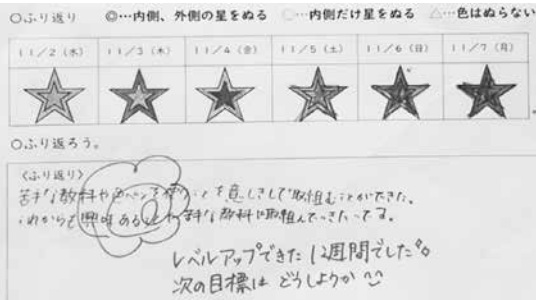 ○ふり返り ◎…内側、外側の星をぬる ○…内側だけ星をぬる △…色はぬらない
11/2(水) 11/3(木) 11/4(金) 11/5(土) 11/6(日) 11/7(月)
○ふり返ろう。
〈ふり返り〉
苦手な教科や色ペンを使うことを意しきして取組むことができた。
これからも興味あることや苦手な教科に取組んでいきたいです。
レベルアップできた1週間でした
次の目標は どうしようか